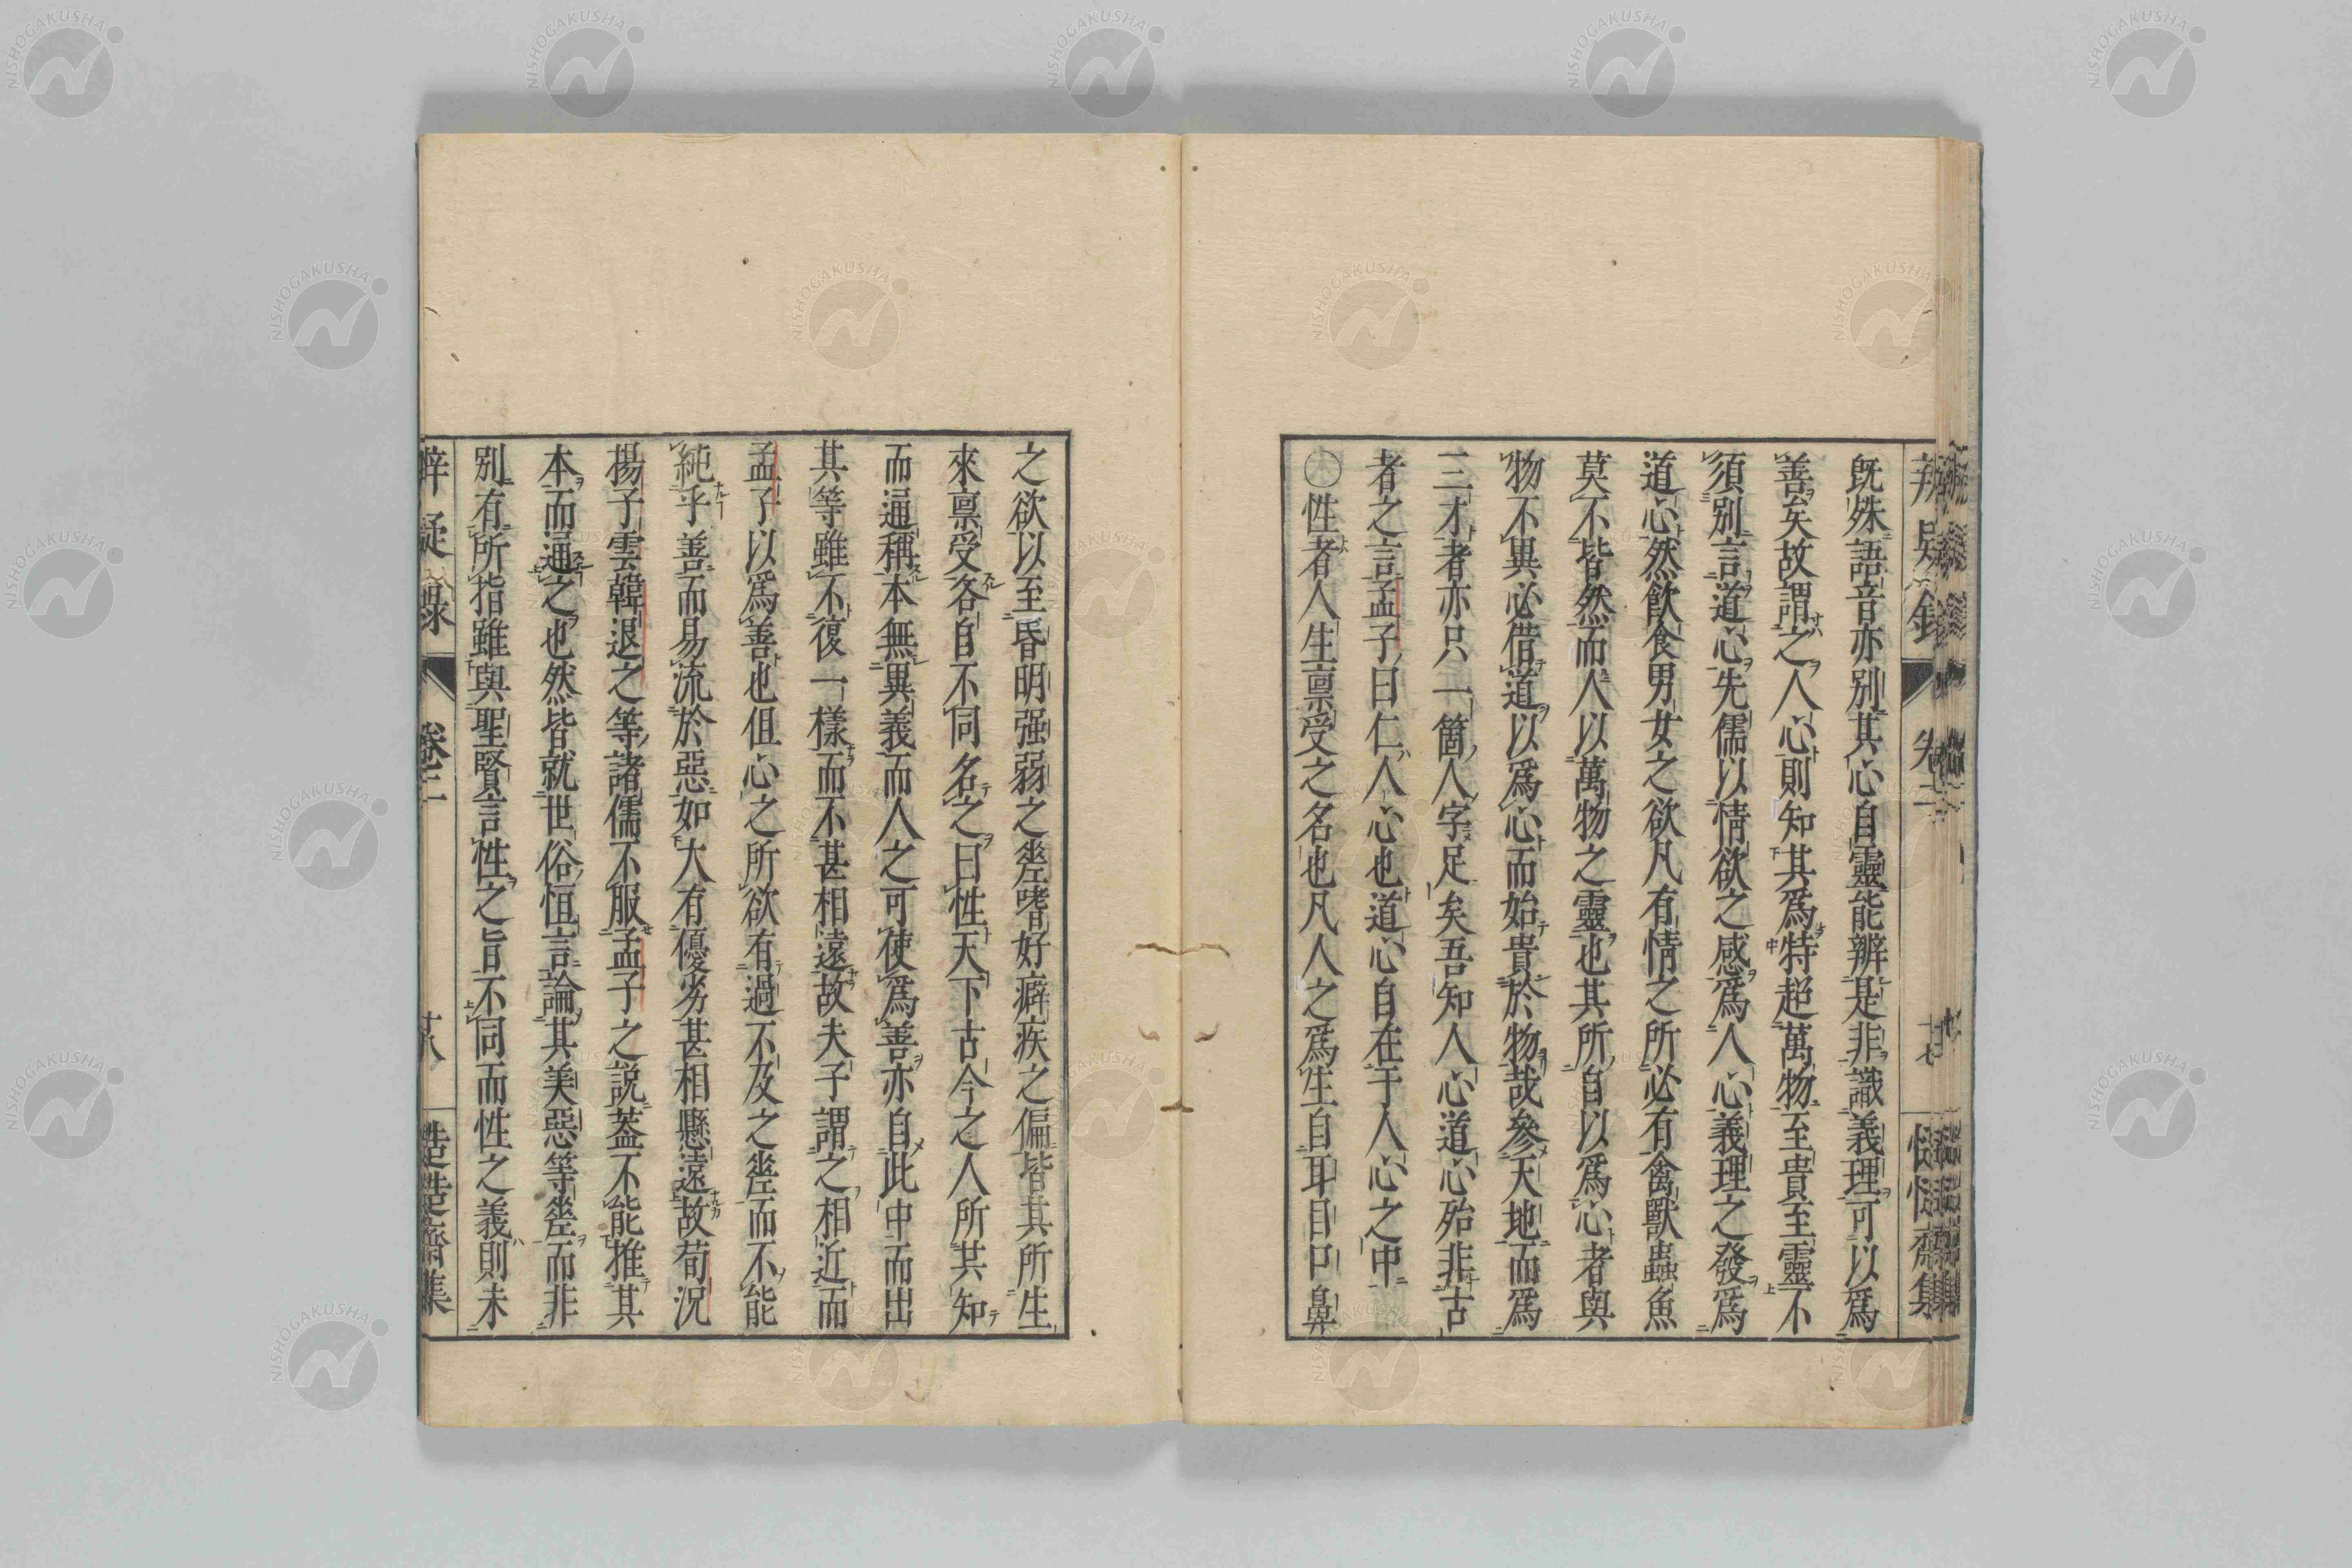 既殊語音亦別其心自靈能辨是非識義理可以爲
善矣故謂之人心則知其爲特超萬物至貴至靈不
須別言道心先儒以情欲之感爲人心義理之發爲
道心然飲食男女之欲凡有情之所必有禽獸蟲魚
莫不皆然而人以萬物之靈也其所自以爲心者與
物不異必借道以爲心而始貴於物哉參天地而爲
三才者亦只一箇人字足矣吾知人心道心殆非古
者之言孟子曰仁人心也道心自在于人心之中
性者人生稟受之名也凡人之爲生自耳目口鼻
之欲以至昏明强弱之坐嗜好癖疾之偏皆其所生
來稟受各自不同名之曰性天下古今之人所共知
而通稱本無異義而人之可使爲善亦自此中而出
其等雖不復一樣而不甚相遠故夫子謂之相近而
孟子以爲善也但心之所欲有過不及之坐而不能
純乎善而易流於惡如大有優劣甚相懸遠故荀況
楊子雲韓退之等諸儒不服孟子之説蓋不能推其
本而通之也然皆就世俗恒言論其美惡等坐而非
別有所指雖與聖賢言性之旨不同而性之義則未
辨疑錄 卷三 廿八 慥慥齋集
NISHOGAKUSHA